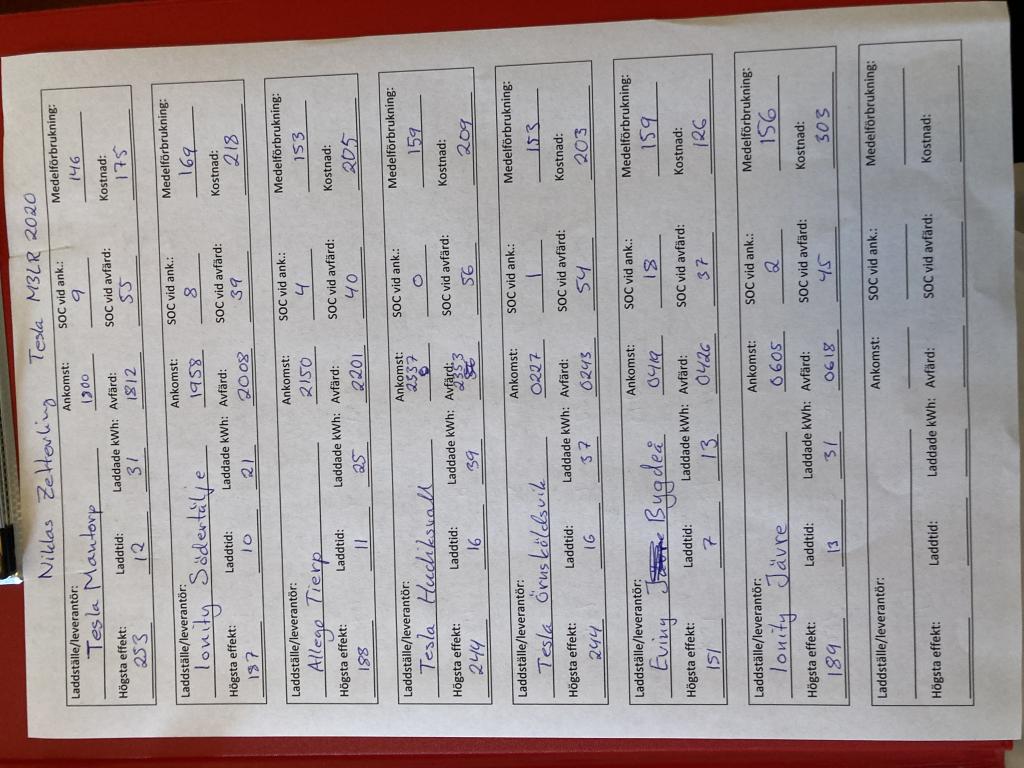 Niklas Zetterling Tesla M3LR 2020
Laddställe/leverantör: Ankomst: SOC vid ank.: Medelförbrukning:
Tesla Mantorp 1800 9 146
Högsta effekt: Laddtid: Laddade kWh: Avfärd: SOC vid avfärd: Kostnad:
253 12 31 1812 55 175
Laddställe/leverantör: Ankomst: SOC vid ank.: Medelförbrukning:
Ionity Södertälje 1958 8 169
Högsta effekt: Laddtid: Laddade kWh: Avfärd: SOC vid avfärd: Kostnad:
197 10 21 2008 39 218
Laddställe/leverantör: Ankomst: SOC vid ank.: Medelförbrukning:
Allego Tierp 2150 4 153
Högsta effekt: Laddtid: Laddade kWh: Avfärd: SOC vid avfärd: Kostnad:
188 11 25 2201 40 205
Laddställe/leverantör: Ankomst: SOC vid ank.: Medelförbrukning:
Tesla Hudiksvall 2337 0 159
Högsta effekt: Laddtid: Laddade kWh: Avfärd: SOC vid avfärd: Kostnad:
244 16 39 2353 56 209
Laddställe/leverantör: Ankomst: SOC vid ank.: Medelförbrukning:
Tesla Örnsköldsvik 0227 1 153
Högsta effekt: Laddtid: Laddade kWh: Avfärd: SOC vid avfärd: Kostnad:
244 16 37 0243 54 203
Laddställe/leverantör: Ankomst: SOC vid ank.: Medelförbrukning:
Eviny Bygdeå 0419 18 159
Högsta effekt: Laddtid: Laddade kWh: Avfärd: SOC vid avfärd: Kostnad:
151 7 13 0426 37 126
Laddställe/leverantör: Ankomst: SOC vid ank.: Medelförbrukning:
Ionity Jävre 0605 2 156
Högsta effekt: Laddtid: Laddade kWh: Avfärd: SOC vid avfärd: Kostnad:
189 13 31 0618 45 303
Laddställe/leverantör: Ankomst: SOC vid ank.: Medelförbrukning:
Högsta effekt: Laddtid: Laddade kWh: Avfärd: SOC vid avfärd: Kostnad: